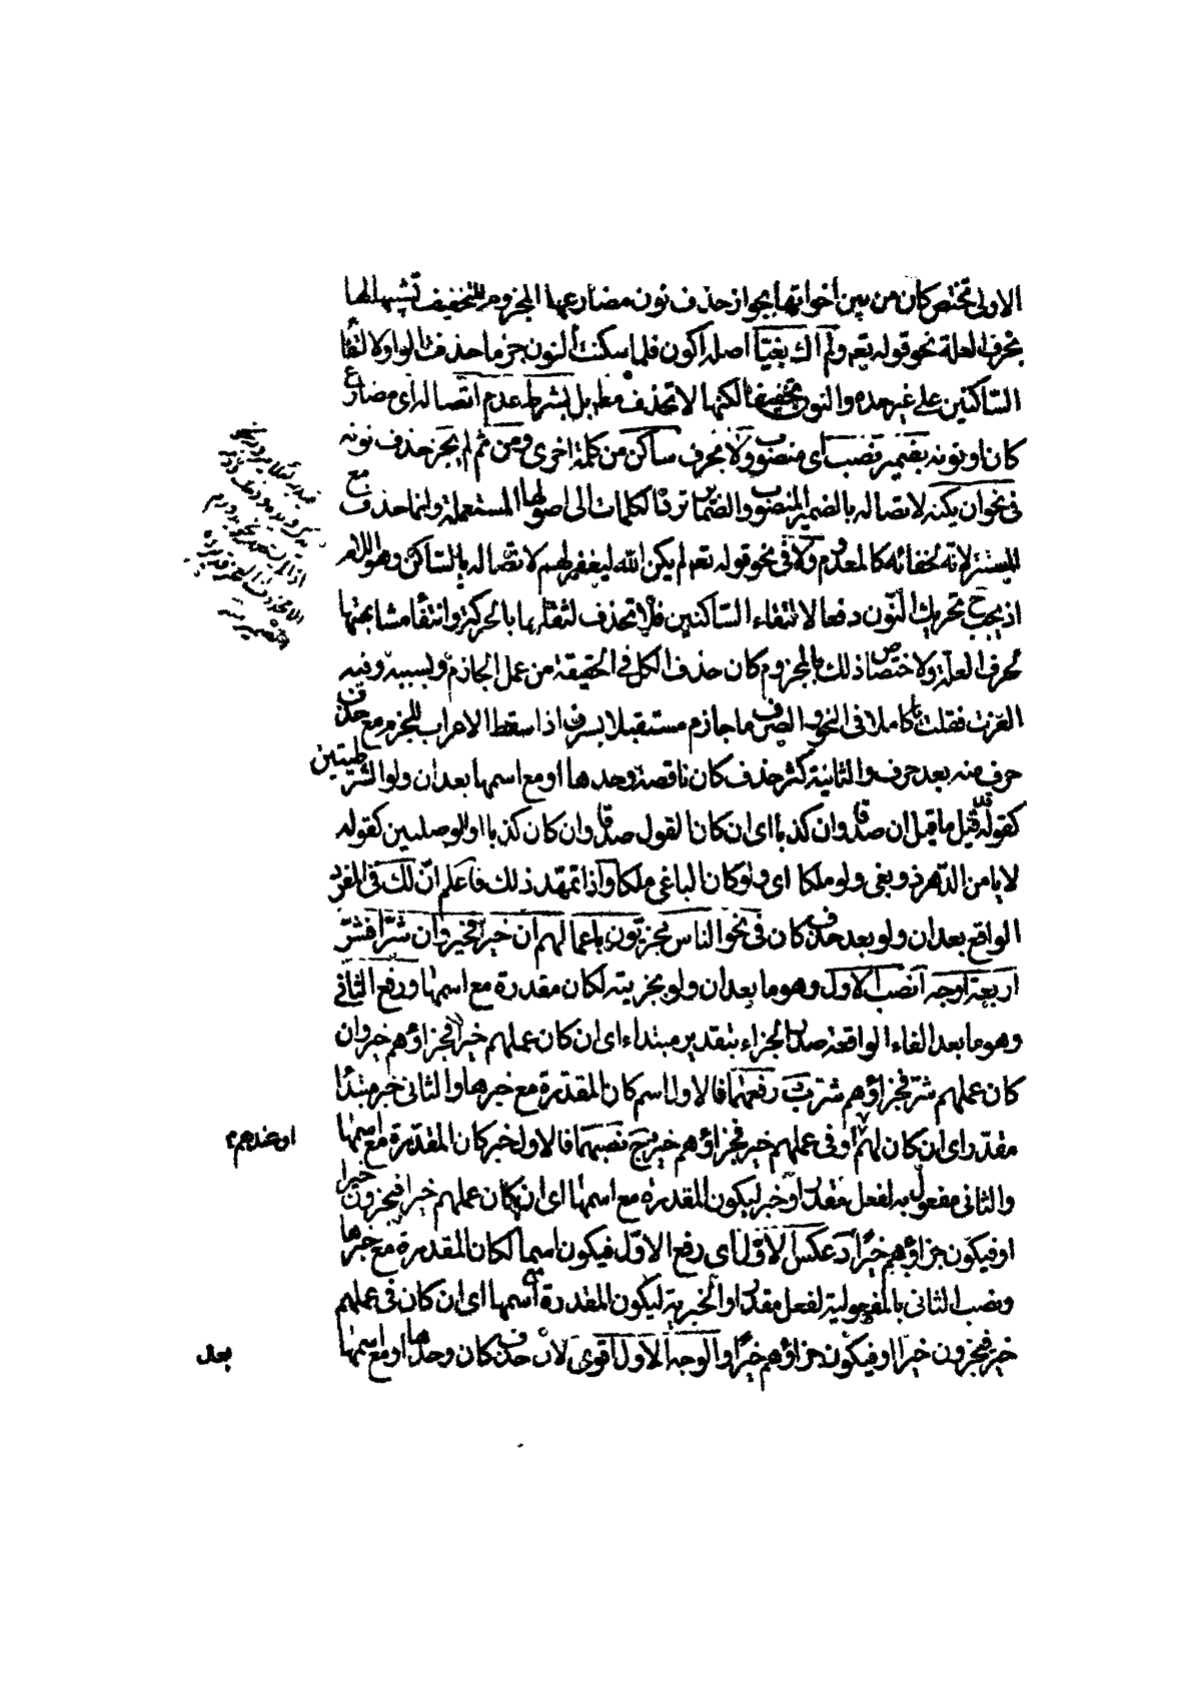 الاولى تختص كان من بين اخواتها بجواز حذف نون مضارعها المجزوم للتخفيف تشبيها لها
بحرف العلة نحو قوله تع ولم اك بغيّا اصله اكون فلما سكنت النون جزما حذفت الواو لالتقاء
الساكنين على غير حده والنون تخفيفا لكنها لا تحذف مط بل بشرط عدم اتصاله اى مضارع
كان او نونه بضمير نصب اى منصوب ولا بحرف ساكن من كلمة اخرى ومن ثم لم يجز حذف نونه
فى نحو ان يكنه لاتصاله بالضمير المنصوب والضمائر ترد الكلمات الى اصولها المستعملة وانما حذف مع
المستتر لانه لخفائه كالمعدوم ولا فى نحو قوله تع لم يكن الله ليغفر لهم لاتصاله بالساكن وهو اللام
اذ يجب ح تحريك النون دفعا لالتقاء الساكنين فلا تحذف لثقلها بالحركة وانتفاء مشابهتها
لحرف العلة ولاختصاص ذلك بالمجزوم كان حذف الكل فى الحقيقة من عمل الجازم وبسببه وفيه
الغزت فقلت يا كاملا فى النحو والصرف ما جازم مستقبلا يسرف اذا سقط الاعراب للجزم مع حذف
حرف منه بعد حرف والثانية كثر حذف كان ناقصة وحدها او مع اسمها بعد ان ولو الشرطيتين
كقوله قد قيل ما قيل ان صدقا وان كذبا اى ان كان القول صدقا وان كان كذبا او الوصليين كقوله
لا يامن الدهر ذو بغى ولو ملكا اى ولو كان الباغى ملكا واذا تمهد ذلك فاعلم ان لك فى المفرد
الواقع بعد ان ولو بعد حذف كان فى نحو الناس مجزيّون باعمالهم ان خيرا فخير وان شرّا فشرّ
اربعة اوجه آ نصب الاول وهو ما بعد ان ولو بخبريته لكان مقدرة مع اسمها ورفع الثانى
وهو ما بعد الفاء الواقعة صدر الجزاء بتقدير مبتداء اى ان كان عملهم خيرا فجزاؤهم خير وان
كان عملهم شر فجزاؤهم شر ب رفعهما فالاول اسم كان المقدرة مع خبرها والثانى خبر مبتدأ
مقدر اى ان كان لهم او فى عملهم خير فجزاؤهم خير ج نصبهما فالاول خبر كان المقدرة مع اسمها
او عندهم
والثانى مفعول به لفعل مقدر او خبر ليكون المقدرة مع اسمها اى ان كان عملهم خيرا فيجزون خيرا
او فيكون جزاؤهم خيرا د عكس الاول اى رفع الاول فيكون اسما لكان المقدرة مع خبرها
ونصب الثانى بالمفعولية لفعل مقدر او الخبرية ليكون المقدرة مع اسمها اى ان كان فى عملهم
خير فيجزون خيرا او فيكون جزاؤهم خيرا والوجه الاول اقوى لان حذف كان وحدها او مع اسمها
بعد